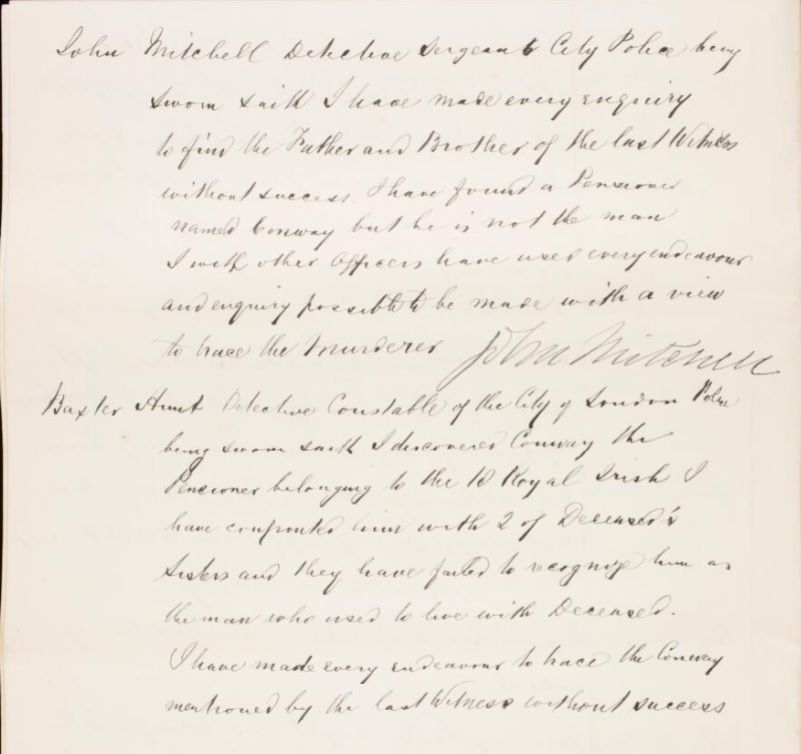 John Mitchell Detective Sergeant City Police being
sworn saith I have made every enquiry
to find the Father and Brother of the last Witness
without success. I have found a Pensioner
named Conway but he is not the man
I with other Officers have used every endeavour
and enquiry possible to be made with a view
to trace the Murderer John Mitchell
Baxter Hunt Detective Constable of the City of London Police
being sworn saith I discovered Conway the
Pensioner belonging to the 18 Royal Irish I
have confronted him with 2 of Deceased's
Sisters and they have failed to recognize him as
the man who used to live with Deceased.
I have made every endeavour to trace the Conway
mentioned by the last Witness without success